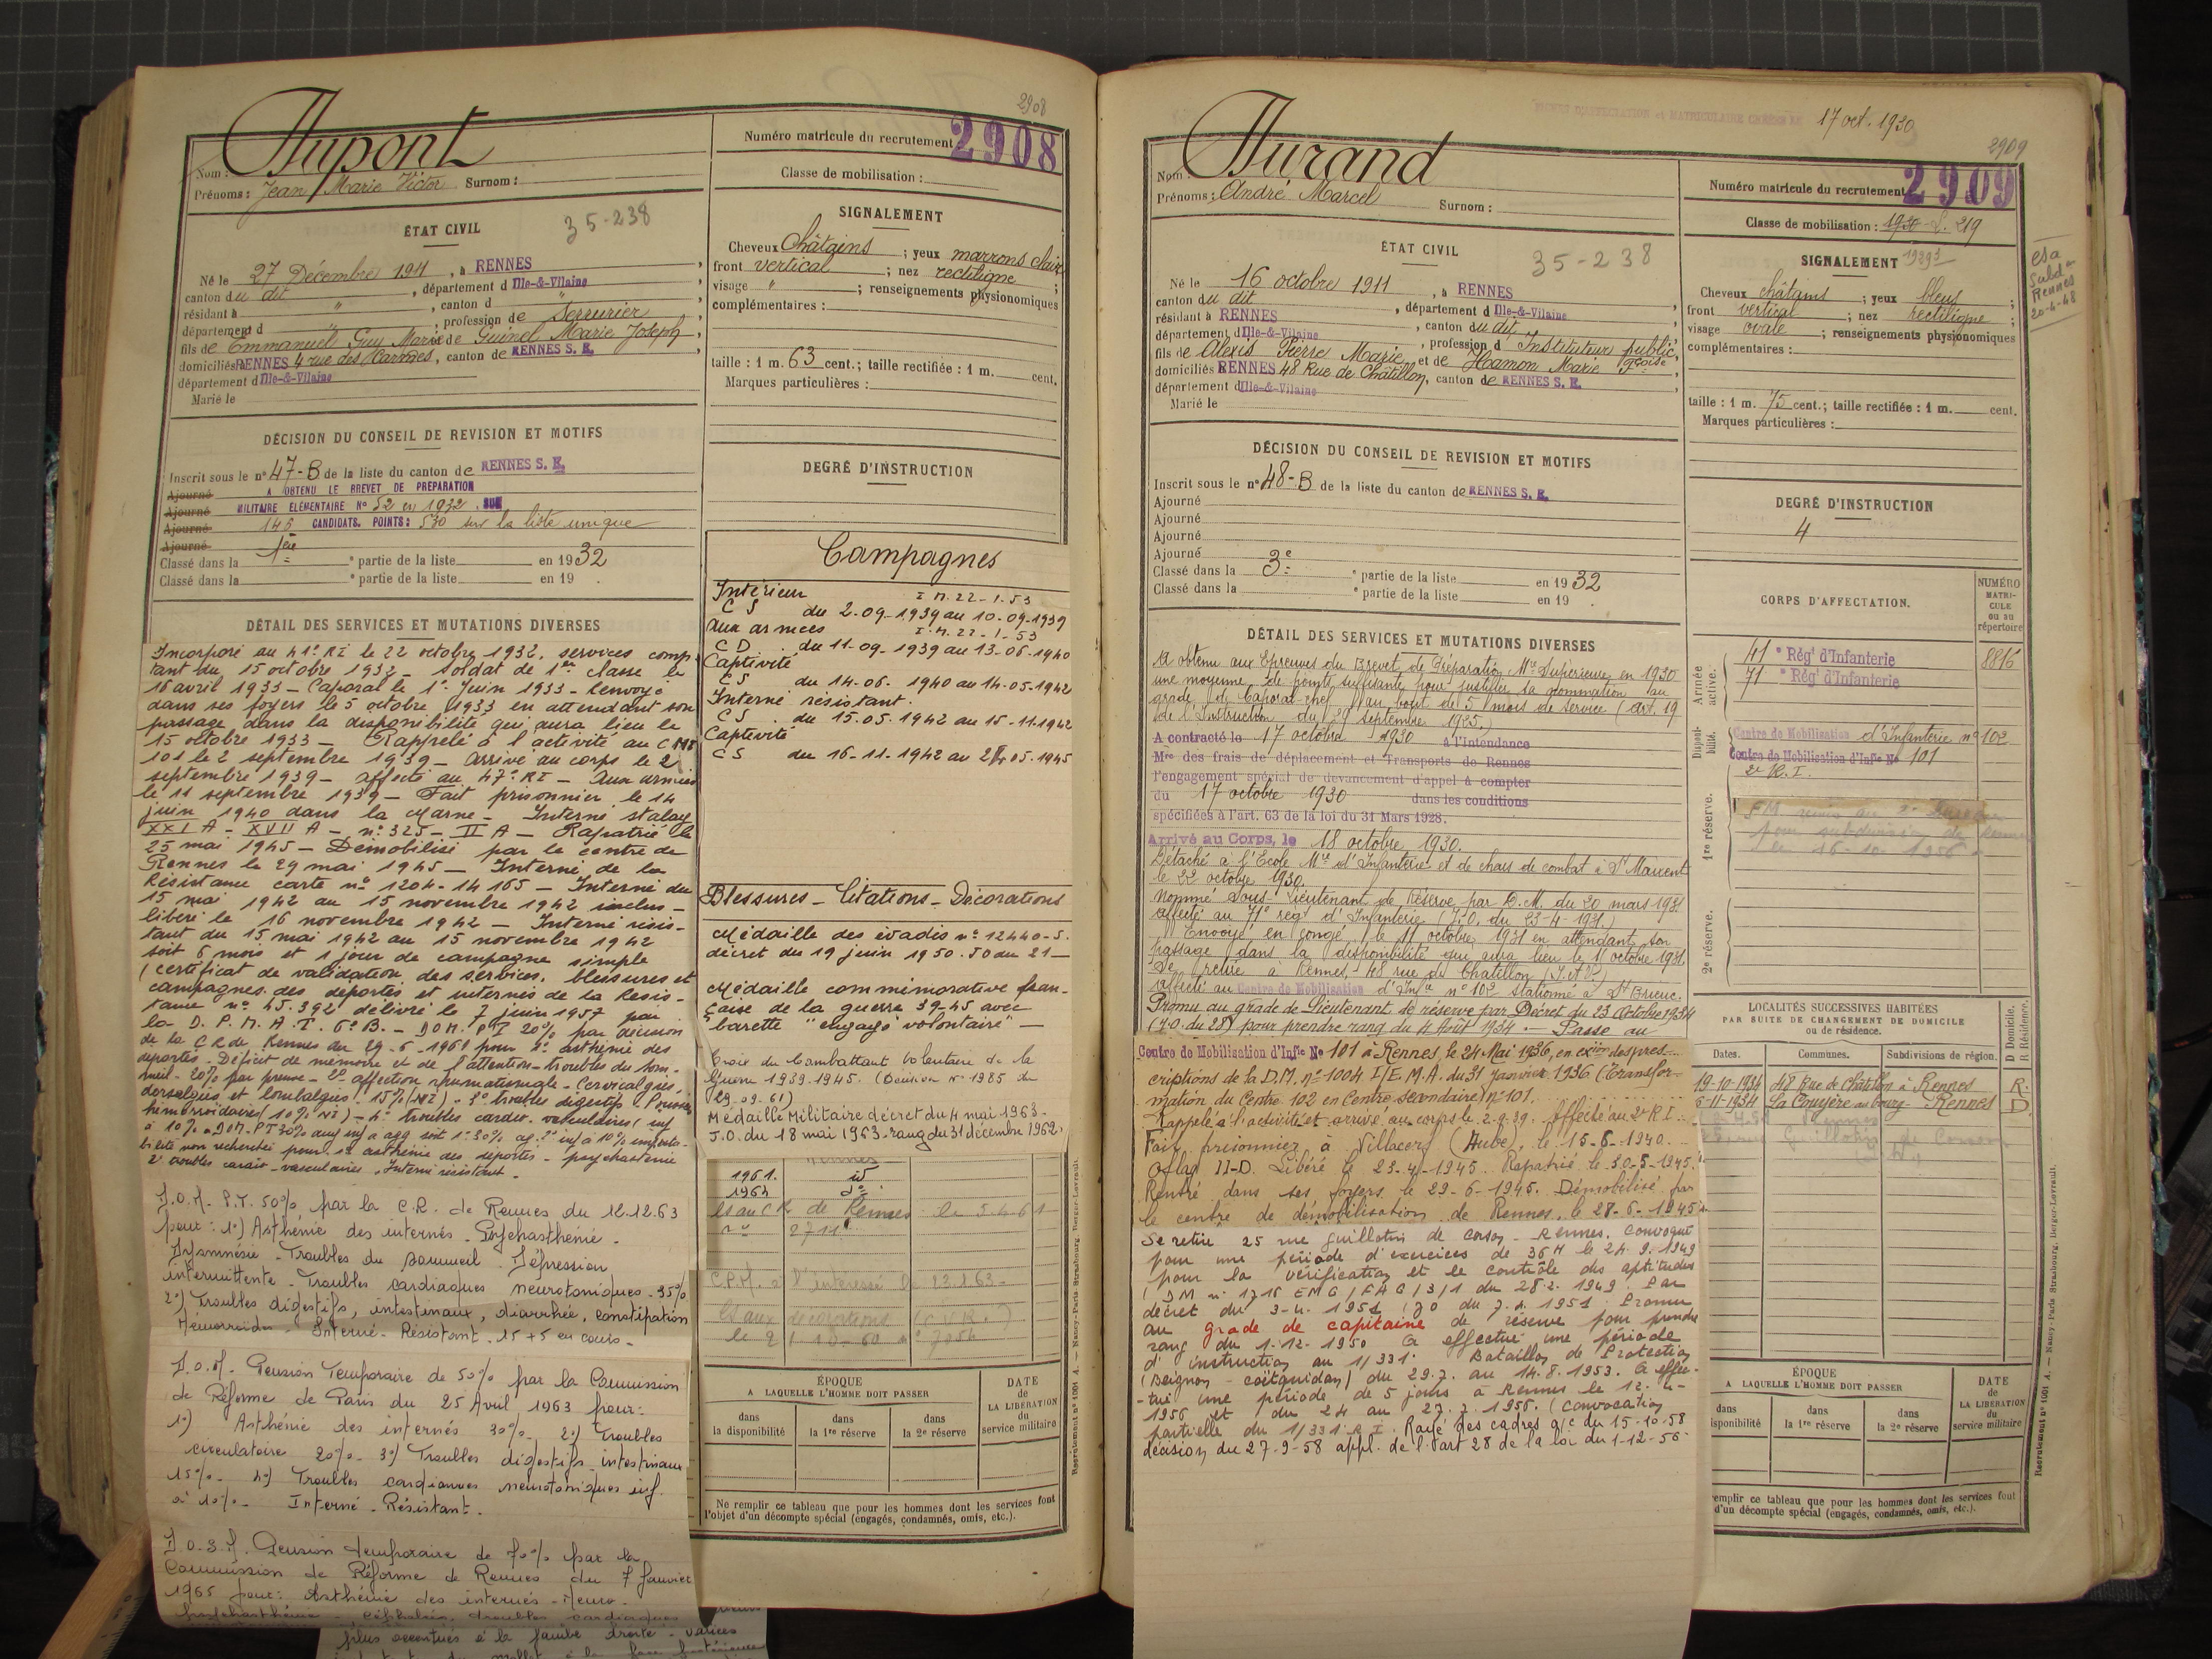 2908
Dupont
Nom :
Prénoms : Jean Marie Victor Surnom :
Numéro matricule du recrutement 2908
Classe de mobilisation :
ÉTAT CIVIL
35-238
Né le 27 Décembre 1911, à RENNES
canton du dit, département d Ille-&-Vilaine
résidant à " , canton d "
département d " , profession de Serrurier
fils de Emmanuel Guy Marie et de Guinel Marie Joseph
domiciliés RENNES 4 rue des Carmes, canton de RENNES S. E.
département d Ille-&-Vilaine
Marié le
SIGNALEMENT
Cheveux châtains ; yeux marrons clairs
front vertical ; nez rectiligne ;
visage " ; renseignements physionomiques
complémentaires :
taille : 1 m. 63 cent.; taille rectifiée : 1 m. cent.
Marques particulières :
DÉCISION DU CONSEIL DE REVISION ET MOTIFS
Inscrit sous le n° 47-B de la liste du canton de RENNES S. E.
Ajourné A OBTENU LE BREVET DE PREPARATION
Ajourné MILITAIRE ELÉMENTAIRE N° 52 en 1932. SUR
Ajourné 146 CANDIDATS. POINTS: 530 sur la liste unique
Ajourné
Classé dans la 1ère partie de la liste en 1932
Classé dans la • partie de la liste en 19 .
DEGRÉ D'INSTRUCTION
DÉTAIL DES SERVICES ET MUTATIONS DIVERSES
Incorporé au 41e RI le 22 octobre 1932, services comp-
tant du 15 octobre 1932 – Soldat de 1ère classe le
16 avril 1933 – Caporal le 1er juin 1933 – Renvoyé
dans ses foyers le 5 octobre 1933 en attendant son
passage dans la disponibilité qui aura lieu le
15 octobre 1933 – Rappelé à l'activité au CMI
101 le 2 septembre 1939 – arrivé au corps le 2
septembre 1939 – affecté au 47e RI – Aux armées
le 11 septembre 1939 – Fait prisonnier le 14
juin 1940 dans la Marne – Interné stalag
XXI A – XVII A – n° 325 – II A – Rapatrié le
25 mai 1945 – Démobilisé par le centre de
Rennes le 29 mai 1945 – Interné de la
Résistance carte n° 1204-14165 – Interné du
15 mai 1942 au 15 novembre 1942 inclus –
libéré le 16 novembre 1942 – Interné résis-
tant du 15 mai 1942 au 15 novembre 1942
soit 6 mois et 1 jour de campagne simple
(certificat de validation des services, blessures et
campagnes des déportés et internés de la Résis-
tance n° 45.392 délivré le 7 juin 1957 par
la D.P.M.A.T. 6e B. – DOM. PT 20% par décision
de la CR de Rennes du 29-6-1961 pour 1° asthénie des
déportés – Déficit de mémoire et de l'attention – troubles du som-
meil – 20% par preuve – 2° affection rhumatismale – Cervicalgies,
dorsalgies et lombalgies 15% (NI) – 3° troubles digestifs –
hémorroïdaires (10% NI) – 4° troubles cardio-vasculaires inf
à 10% – DOM. PT 30% inf à
asthénie des déportés – psychasthénie
2° troubles cardio-vasculaires. Interné résistant –
P.T. 50% par la C.R. de Rennes du 12.12.63
pour : 1°) Asthénie des internés. Psychasthénie –
Dysmnésie – Troubles du sommeil. Dépression
intermittente – Troubles cardiaques neurotoniques – 35%
2°) Troubles digestifs, intestinaux, diarrhée, constipation
Hémorroïdes – Interné-Résistant – 15 + 5 en cours –
Pension Temporaire de 50% par la Commission
de Réforme de Paris du 25 Avril 1963 pour :
1°) Asthénie des internés 30% – 2°) Troubles
circulatoire 20% – 3°) Troubles digestifs intestinaux
15% – 4°) Troubles cardiaques neurotoniques inf.
à 10% – Interné – Résistant.
Pension temporaire de 70% par la
Commission de Réforme de Rennes du 7 Janvier
1965 pour : Asthénie des internés –
psychasthénie – céphalées, troubles cardiaques
plus accentués à la jambe droite – varices
Campagnes
Intérieur I.M.22-1.53
C S du 2-09-1939 au 10-09-1939
aux armées I.M.22-1-53
C D du 11-09-1939 au 13-06-1940
Captivité
C S du 14-06-1940 au 14-05-1942
Interné résistant.
C S du 15.05.1942 au 15-11-1942
Captivité
C S du 16-11-1942 au 24.05.1945
Blessures – Citations – Décorations
Médaille des évadés n° 12440-S.
décret du 19 juin 1950. JO du 21 –
Médaille commémorative fran-
çaise de la guerre 39-45 avec
barette "engagé volontaire" –
Croix du Combattant Volontaire de la
Guerre 1939-1945. (Décision n° 1985 du
29.09.61)
Médaille Militaire décret du 4 mai 1963.
J.O. du 18 mai 1963. rang du 31 décembre 1962.
1961. id
1964 d°
de Rennes le 5.4.61
n° 2711
C.P.M. à l'intéressé le
décorations
ÉPOQUE
A LAQUELLE L'HOMME DOIT PASSER
dans la disponibilité
dans la 1re réserve
dans la 2e réserve
DATE de LA LIBÉRATION du service militaire
Ne remplir ce tableau que pour les hommes dont les services font
l'objet d'un décompte spécial (engagés, condamnés, omis, etc.).
Recrutement n° 1001 A. — Nancy-Paris-Strasbourg, Berger-Levrault.
17 oct. 1930
2909
Durand
Nom :
Prénoms : André Marcel Surnom :
Numéro matricule du recrutement 2909
Classe de mobilisation : 1930 219
ÉTAT CIVIL
35-238
Né le 16 octobre 1911, à RENNES
canton du dit, département d Ille-&-Vilaine
résidant à RENNES, canton du dit,
département d Ille-&-Vilaine, profession d' Instituteur public,
fils de Alexis Pierre Marie et de Hamon Marie Fçoise
domiciliés RENNES 48 Rue de Châtillon, canton de RENNES S. E.
département d Ille-&-Vilaine
Marié le
SIGNALEMENT
Cheveux châtains ; yeux bleus ;
front vertical ; nez rectiligne ;
visage ovale ; renseignements physionomiques
complémentaires :
taille : 1 m. 75 cent.; taille rectifiée : 1 m. cent.
Marques particulières :
Subd on
Rennes
20-4-48
DÉCISION DU CONSEIL DE REVISION ET MOTIFS
Inscrit sous le n° 48-B de la liste du canton de RENNES S. E.
Ajourné
Ajourné
Ajourné
Ajourné
Classé dans la 3e partie de la liste en 1932
Classé dans la • partie de la liste en 19 .
DEGRÉ D'INSTRUCTION
4
DÉTAIL DES SERVICES ET MUTATIONS DIVERSES
A obtenu aux Epreuves du Brevet de Préparation Mre Supérieure en 1930
une moyenne de points suffisante pour justifier sa nomination au
grade de Caporal chef au bout de 5 mois de service (art. 19
de l'Instruction du 29 septembre 1925.)
A contracté le 17 octobre 1930 à l'Intendance
Mre des frais de déplacement et Transports de Rennes
l'engagement spécial de devancement d'appel à compter
du 17 octobre 1930 dans les conditions
spécifiées à l'art. 63 de la loi du 31 Mars 1928.
Arrivé au Corps, le 18 octobre 1930.
Détaché à l'Ecole Mre d'Infanterie et de chars de combat à St Maixent
le 22 octobre 1930.
Nommé Sous-Lieutenant de Réserve par D.M. du 20 mars 1931
affecté au 71e rég' d'Infanterie (J.O. du 23-4-1931.)
Envoyé en congé le 11 octobre 1931 en attendant son
passage dans la disponibilité qui aura lieu le octobre 1931.
Se retire à Rennes, 48 rue de Chatillon (I.et V.)
affecté au Centre de Mobilisation d'Infie n° 102 stationné à St Brieuc.
Promu au grade de Lieutenant de réserve par Décret du 23 octobre 1934
(J.O. du 28) pour prendre rang du 4 Août 1934 – Passe au
Centre de Mobilisation d'Infie N° 101 à Rennes, le 24 Mai 1936, en exon des pres-
criptions de la D.M. n° 1004 I/E.M.A. du 31 Janvier 1936. (Transfor-
mation du Centre 102 en Centre secondaire) n° 101.
Rappelé à l'activité et arrivé au corps le 2.9.39. Affecté au 2e R.I.
Fait prisonnier à Villacerf (Aube), le 15-6-1940.
Oflag II-D. Libéré le 23-4-1945. Rapatrié le 30-5-1945.
Rentré dans ses foyers le 29-6-1945. Démobilisé par
le centre de démobilisation de Rennes, le 28-6-1945.
Se retire 25 rue Guillotin de Corson – Rennes. Convoqué
pour une période d'exercices de 36 H le 24.9.1949
pour la vérification et le contrôle des aptitudes
(DM n° 1716 EMG/FAG/3/1 du 28.2.1949. Par
décret du 3-4-1951 (JO du 7.4.1951. Promu
au grade de capitaine de réserve pour prendre
rang du 1-12-1950. A effectué une période
d'instruction au 1/331e Bataillon de Protection
(Beignon – Coëtquidan) du 29.7. au 14.8.1953. A effec-
tué une période de 5 jours à Rennes le 12-4-
1956 et du 24 au 27.7.1956. (Convocation
partielle du 1/331 R.I. Rayé des cadres a/c du 15-10-58
décision du 27-9-58 appl. de l'art 28 de la loi du 1-12-56
CORPS D'AFFECTATION.
NUMÉRO MATRI-CULE ou au répertoire
Armée active.
41e Rég' d'Infanterie 8816
71e Rég' d'Infanterie
Disponi-bilité.
Centre de Mobilisation d'Infanterie n° 102
Centre de Mobilisation d'Infie N° 101
2e R.I.
1re réserve.
pour subdivision de Rennes
le 16-10-1956
2e réserve.
LOCALITÉS SUCCESSIVES HABITÉES
PAR SUITE DE CHANGEMENT DE DOMICILE
ou de résidence.
Dates. Communes. Subdivisions de région. D Domicile. R Résidence.
19-10-1934 48 Rue de Châtillon à Rennes R.
6-11-1934 La Couyère au bourg – Rennes D.
ÉPOQUE
A LAQUELLE L'HOMME DOIT PASSER
dans
disponibilité
dans la 1re réserve
dans la 2e réserve
DATE de LA LIBÉRATION du service militaire
remplir ce tableau que pour les hommes dont les services font
d'un décompte spécial (engagés, condamnés, omis, etc.).
Recrutement n° 1001 A. — Nancy-Paris-Strasbourg, Berger-Levrault.